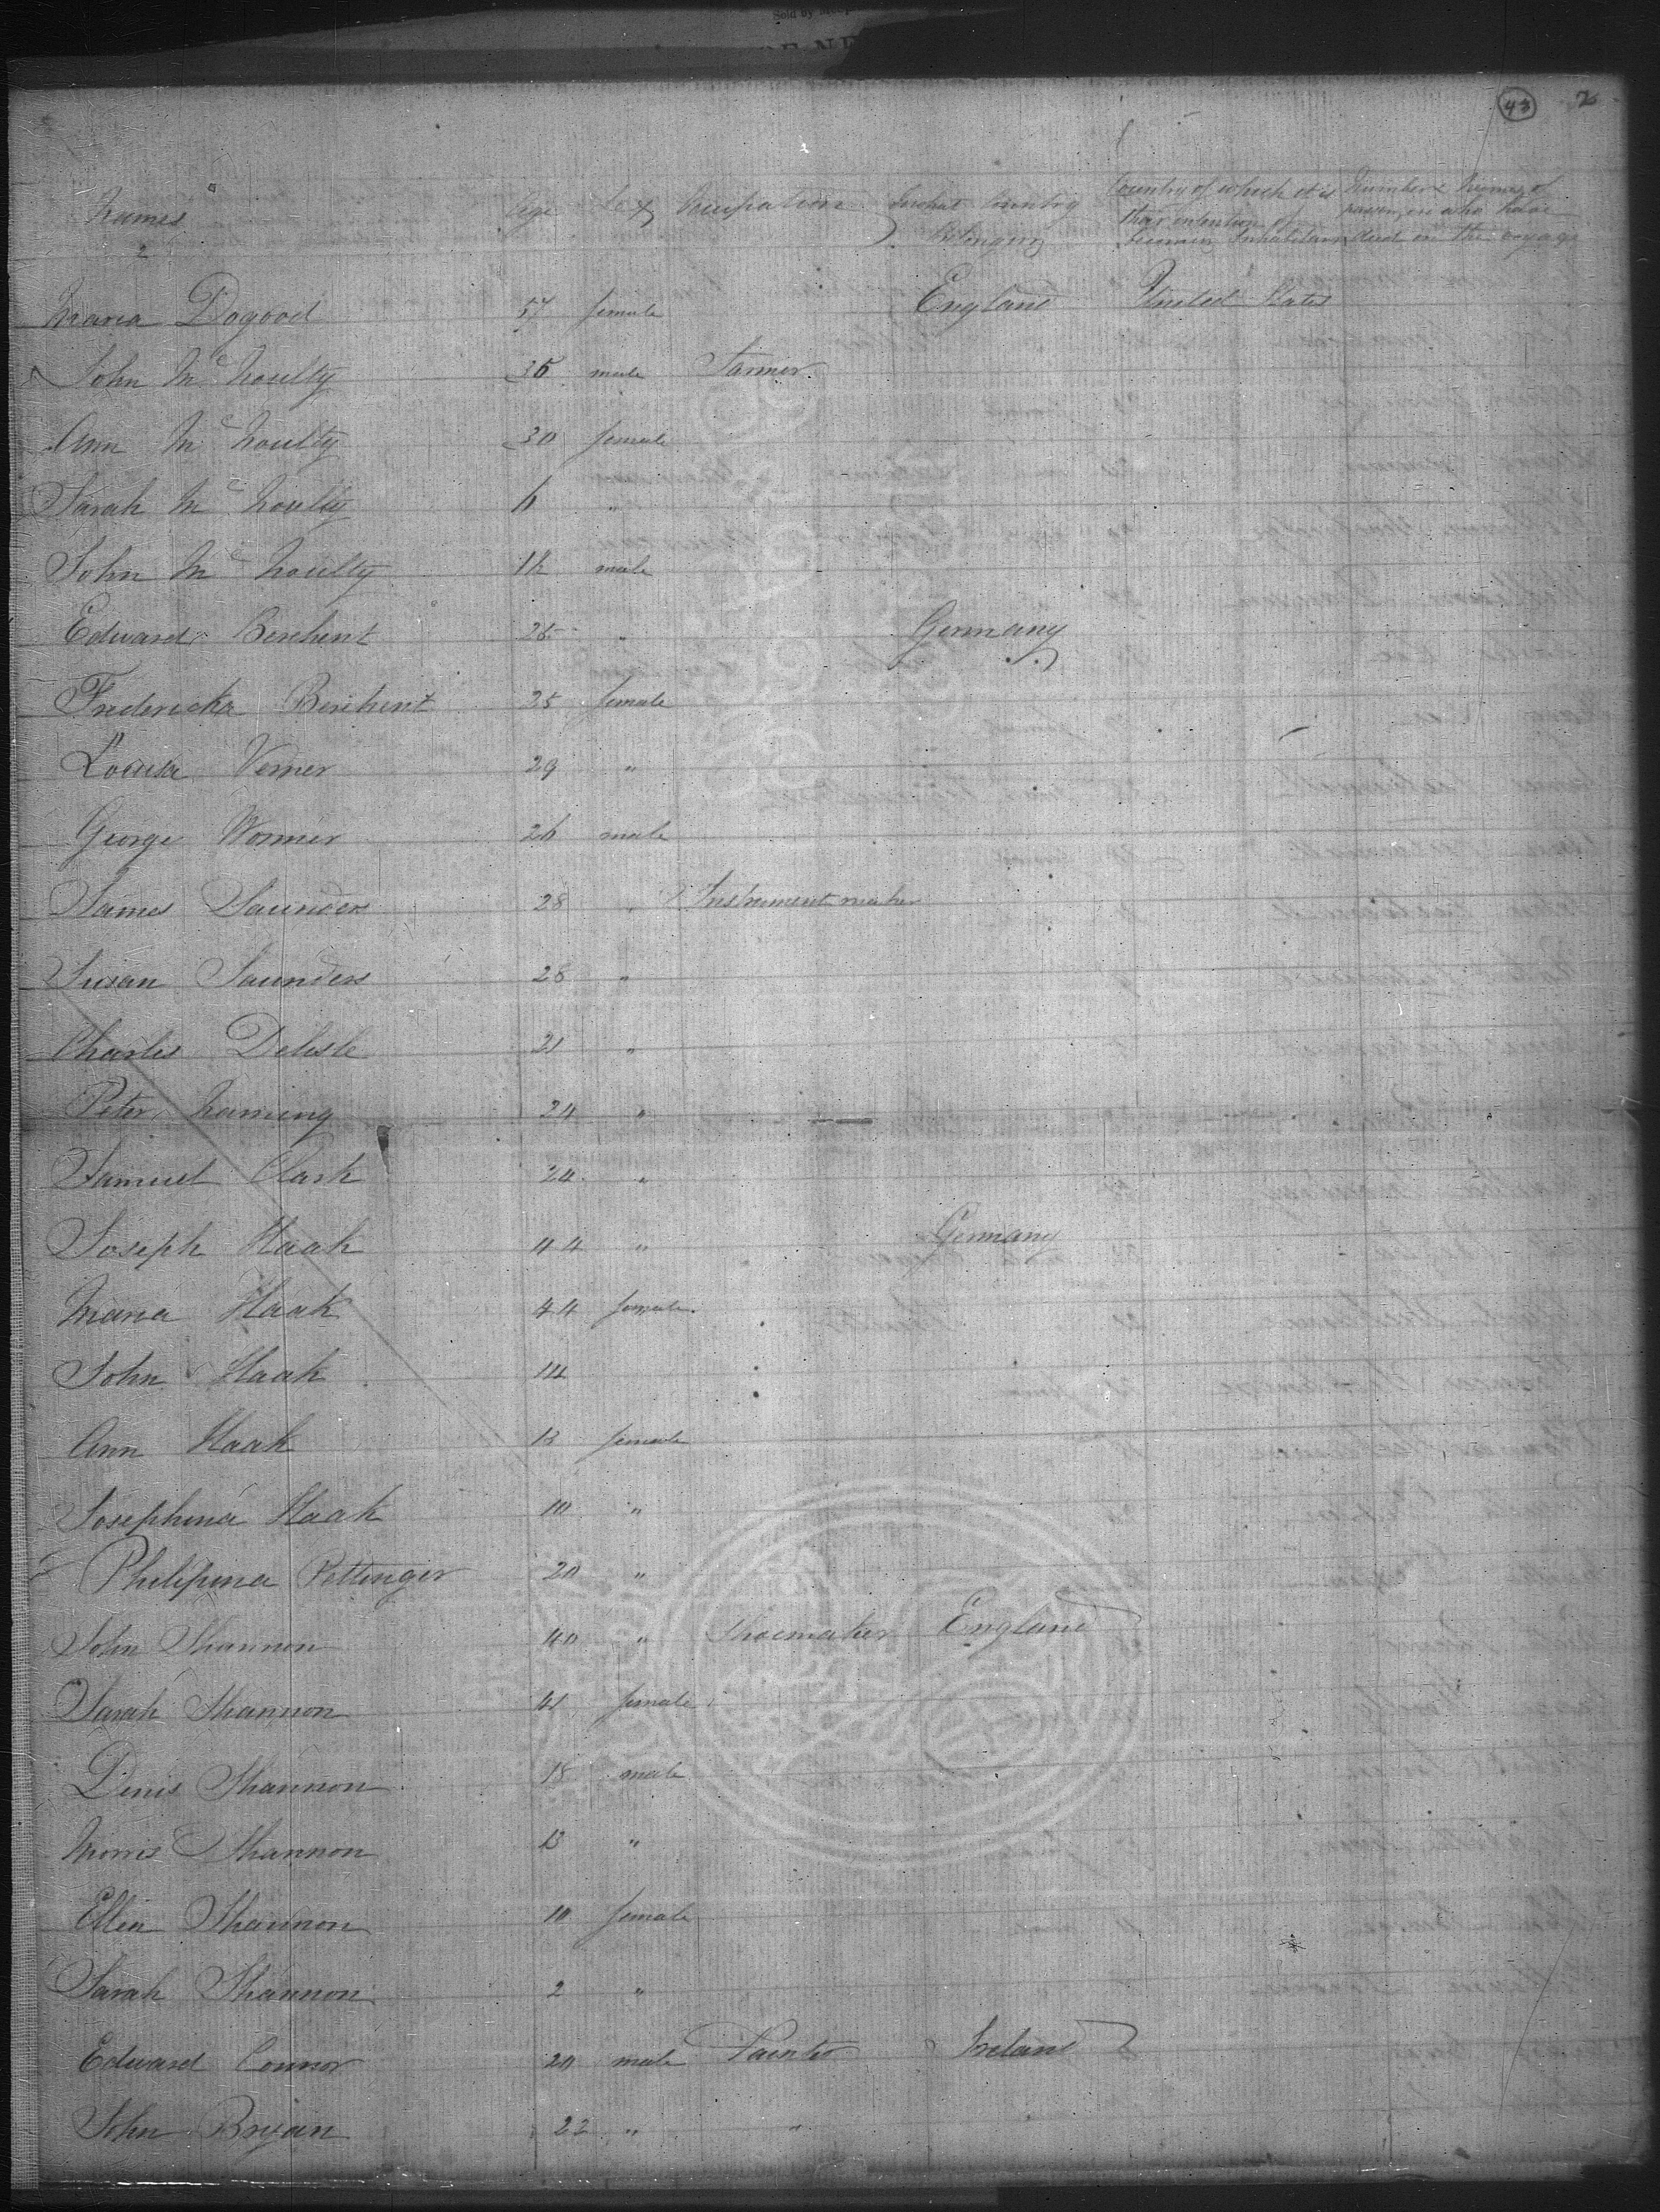 Sold by
43 2
Names Age Sex Occupation To what Country Belonging Country of which it is their intention of becoming Inhabitants Number & Names of passengers who have died on the voyage
2
Maria Dogood 57 female England United States
John Mc Noulty 35 male Farmer
Ann Mc Noulty 30 female
Sarah Mc Noulty 6 "
John Mc Noulty male
Edward Berchent 26 " Germany
Fredericka Berchent 25 female
Louisa Verner 29 "
George Wormer 26 male
James Saunders 28 " Instrument maker
Susan Saunders 28 "
Charles Delisle 21 "
Peter 24 "
Samuel Clark 24 "
Joseph Haak 44 " Germany
Maria Haak 44 female
John Haak 14
Ann Haak 13 female
Josephina Haak 10 "
Philipina Pettinger 20 "
John Shannon 40 " Shoemaker England
Sarah Shannon 41 female
Denis Shannon 18 male
Morris Shannon 13 "
Ellen Shannon 10 female
Sarah Shannon 2 "
Edward Connor 20 male Painter Ireland
John Bryan 22 " "